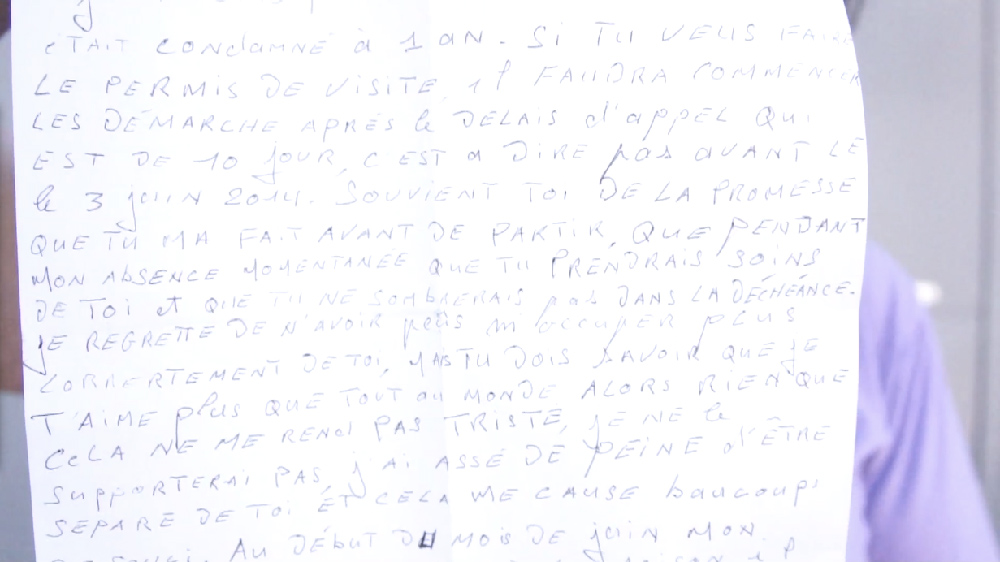 ÉTAIT CONDAMNÉ à 1 AN. SI TU VEUS FAI
LE PERMIS DE VISITE, il FAUDRA COMMENCER
LES DÉMARCHE APRÈS le DÉLAIS d'APPEL QUI
EST DE 10 JOUR, C'EST A DIRE pas AVANT LE
le 3 juin 2014. SOUVIENT TOI DE LA PROMESSE
QUE TU MA FAIT AVANT DE PARTIR, QUE PENDANT
MON ABSENCE MOMENTANÉE QUE TU PRENDRAIS SOINS
DE TOI et QUE TU NE SOMBRERAIS pas DANS LA DÉCHÉANCE.
JE REGRETTE DE N'AVOIR m'occuper plus
DE TOI, MAIS TU DOIS SAVOIR QUE JE
T'AIME plus QUE TOUT AU MONDE ALORS RIEN QUE
CELA NE ME REND PAS TRISTE, JE NE le
SUPPORTERAI PAS, J'AI ASSÉ DE PEINE d'ÊTRE
SÉPARÉ DE TOI ET CELA ME CAUSE baucoup
AU DÉBUT DU MOIS DE juin MON